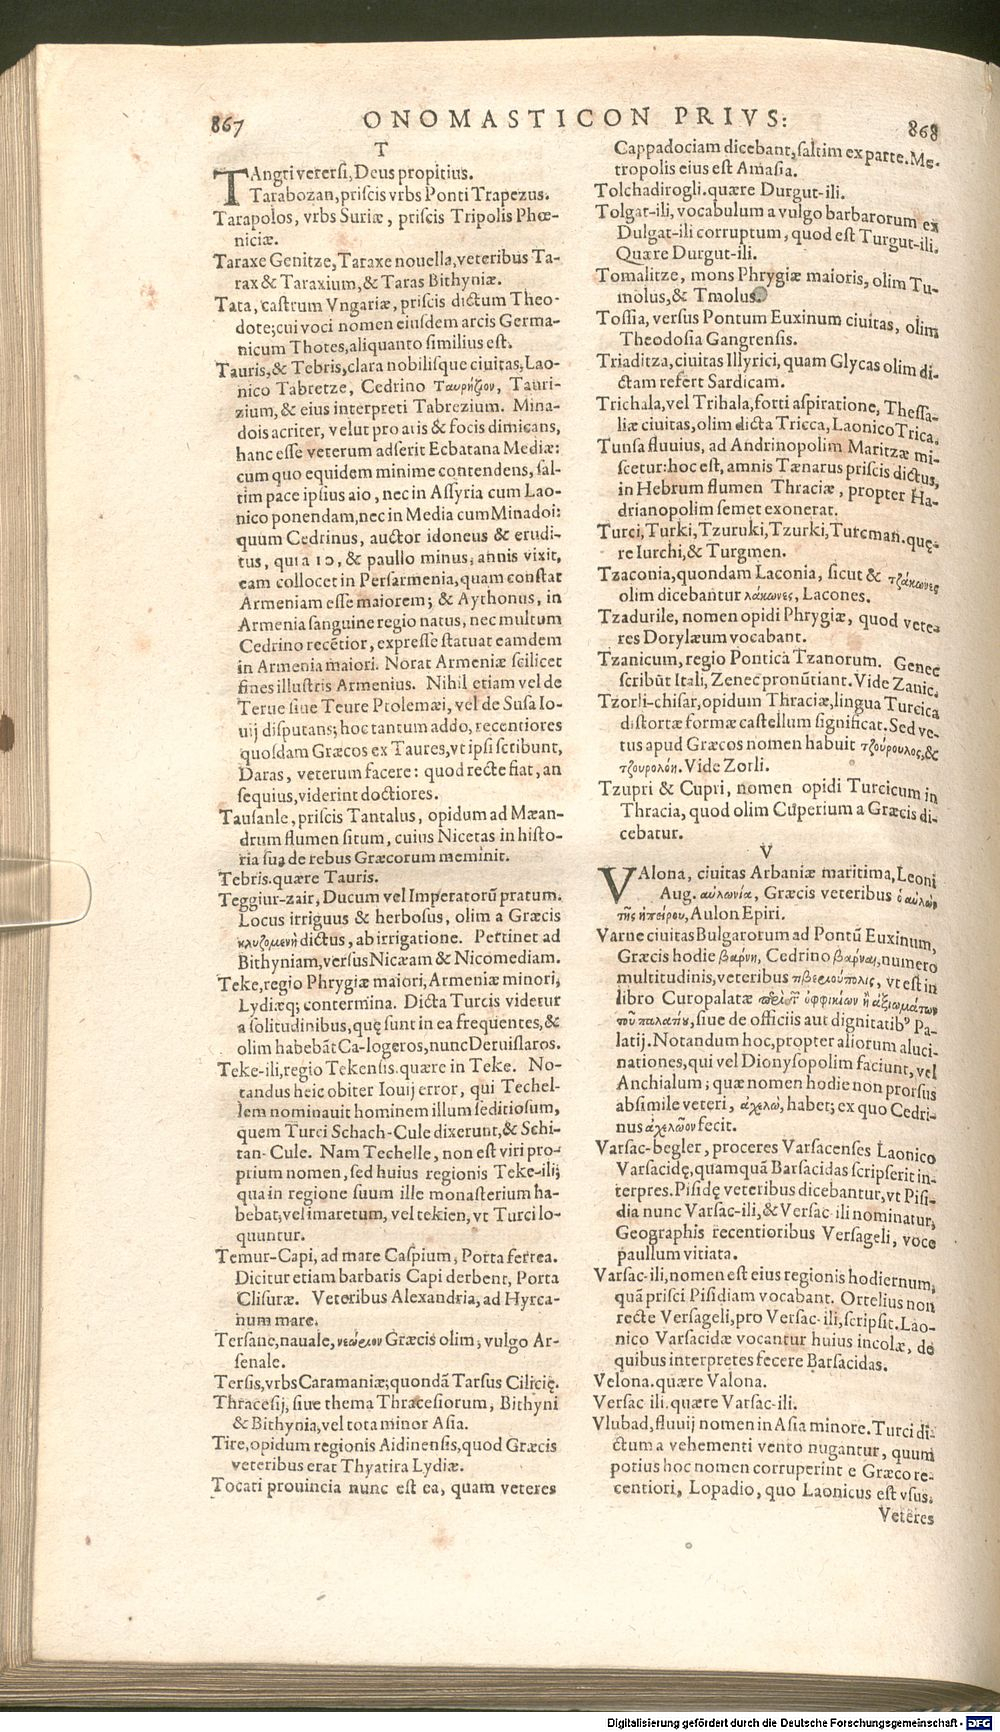 867 ONOMASTICON PRIVS: 868
T
TAngri verersi, Deus propitius.
Tarabozan, priscis vrbs Ponti Trapezus.
Tarapolos, vrbs Suriæ, priscis Tripolis Phœ-
niciæ.
Taraxe Genitze, Taraxe nouella, veteribus Ta-
rax & Taraxium, & Taras Bithyniæ.
Tata, castrum Vngariæ, priscis dictum Theo-
dote; cui voci nomen eiusdem arcis Germa-
nicum Thotes, aliquanto similius est.
Tauris, & Tebris, clara nobilisque ciuitas, Lao-
nico Tabretze, Cedrino Ταυρήζιον, Tauri-
zium, & eius interpreti Tabrezium. Mina-
dois acriter, velut pro aris & focis dimicans,
hanc esse veterum adserit Ecbatana Mediæ:
cum quo equidem minime contendens, sal-
tim pace ipsius aio, nec in Assyria cum Lao-
nico ponendam, nec in Media cum Minadoi:
quum Cedrinus, auctor idoneus & erudi-
tus, qui a 1ↄ, & paullo minus, annis vixit,
eam collocet in Persarmenia, quam constat
Armeniam esse maiorem; & Aythonus, in
Armenia sanguine regio natus, nec multum
Cedrino recētior, expresse statuat eamdem
in Armenia maiori. Norat Armeniæ scilicet
fines illustris Armenius. Nihil etiam vel de
Terue siue Teure Ptolemæi, vel de Susa Io-
uij disputans; hoc tantum addo, recentiores
quosdam Græcos ex Taures, vt ipsi scribunt,
Daras, veterum facere: quod recte fiat, an
sequius, viderint doctiores.
Tausanle, priscis Tantalus, opidum ad Mæan-
drum flumen situm, cuius Nicetas in histo-
ria sua de rebus Græcorum meminit.
Tebris. quære Tauris.
Teggiur-zair, Ducum vel Imperatorū pratum.
Locus irriguus & herbosus, olim a Græcis
κλυζομενὴ dictus, ab irrigatione. Pertinet ad
Bithyniam, versus Nicæam & Nicomediam.
Teke, regio Phrygiæ maiori, Armeniæ minori,
Lydiæq; contermina. Dicta Turcis videtur
a solitudinibus, quę sunt in ea frequentes, &
olim habebāt Ca-logeros, nunc Deruislaros.
Teke-ili, regio Tekensis. quære in Teke. No-
tandus heic obiter Iouij error, qui Techel-
lem nominauit hominem illum seditiosum,
quem Turci Schach-Cule dixerunt, & Schi-
tan-Cule. Nam Techelle, non est viri pro-
prium nomen, sed huius regionis Teke-ili;
qua in regione suum ille monasterium ha-
bebat, vel imaretum, vel tekien, vt Turci lo-
quuntur.
Temur-Capi, ad mare Caspium, Porta ferrea.
Dicitur etiam barbaris Capi derbent, Porta
Clisuræ. Veteribus Alexandria, ad Hyrca-
num mare.
Tersane, nauale, νεώριον Græcis olim, vulgo Ar-
senale.
Tersis, vrbs Caramaniæ; quondā Tarsus Cilicię.
Thracesij, siue thema Thracesiorum, Bithyni
& Bithynia, vel tota minor Asia.
Tire, opidum regionis Aidinensis, quod Græcis
veteribus erat Thyatira Lydiæ.
Tocati prouincia nunc est ea, quam veteres
Cappadociam dicebant, saltim ex parte. Me-
tropolis eius est Amasia.
Tolchadirogli. quære Durgut-ili.
Tolgat-ili, vocabulum a vulgo barbarorum ex
Dulgat-ili corruptum, quod est Turgut-ili.
Quære Durgut-ili.
Tomalitze, mons Phrygiæ maioris, olim Tu-
molus, & Tmolus.
Tossia, versus Pontum Euxinum ciuitas, olim
Theodosia Gangrensis.
Triaditza, ciuitas Illyrici, quam Glycas olim di-
ctam refert Sardicam.
Trichala, vel Trihala, forti aspiratione, Thessa-
liæ ciuitas, olim dicta Tricca, Laonico Trica.
Tunsa fluuius, ad Andrinopolim Maritzæ mi-
scetur: hoc est, amnis Tænarus priscis dictus,
in Hebrum flumen Thraciæ, propter Ha-
drianopolim semet exonerat.
Turci, Turki, Tzuruki, Tzurki, Turcman. quę-
re Iurchi, & Turgmen.
Tzaconia, quondam Laconia, sicut & τζάκωνες
olim dicebantur λάκωνες, Lacones.
Tzadurile, nomen opidi Phrygiæ, quod vete-
res Dorylæum vocabant.
Tzanicum, regio Pontica Tzanorum. Genec
scribūt Itali, Zenec pronūtiant. Vide Zanic.
Tzorli-chisar, opidum Thraciæ, lingua Turcica
distortæ formæ castellum significat. Sed ve-
tus apud Græcos nomen habuit τζούρουλος, &
τζουρολόη. Vide Zorli.
Tzupri & Cupri, nomen opidi Turcicum in
Thracia, quod olim Cuperium a Græcis di-
cebatur.
V
VAlona, ciuitas Arbaniæ maritima, Leoni
Aug. αὐλωνία, Græcis veteribus ὁ αὐλὼν
τῆς ἠπείρου, Aulon Epiri.
Varne ciuitas Bulgarorum ad Pontū Euxinum,
Græcis hodie βαρνη, Cedrino βαρναι, numero
multitudinis, veteribus vt est in
libro Curopalatæ περὶ τ ὀφφικίων ἢ ἀξιωμάτων
τοῦ παλατίου, siue de officiis aut dignitatibꝰ Pa-
latij. Notandum hoc, propter aliorum aluci-
nationes, qui vel Dionysopolim faciunt, vel
Anchialum; quæ nomen hodie non prorsus
absimile veteri, ἀχελὼ, habet; ex quo Cedri-
nus ἀχελῶον fecit.
Varsac-begler, proceres Varsacenses Laonico
Varsacidę, quamquā Barsacidas scripserit in-
terpres. Pisidę veteribus dicebantur, vt Pisi-
dia nunc Varsac-ili, & Versac-ili nominatur,
Geographis recentioribus Versageli, voce
paullum vitiata.
Varsac-ili, nomen est eius regionis hodiernum,
quā prisci Pisidiam vocabant. Ortelius non
recte Versageli, pro Versac-ili, scripsit. Lao-
nico Varsacidæ vocantur huius incolæ, de
quibus interpretes fecere Barsacidas.
Velona. quære Valona.
Versac ili. quære Varsac-ili.
Vlubad, fluuij nomen in Asia minore. Turci di-
ctum a vehementi vento nugantur, quum
potius hoc nomen corruperint e Græco re-
centiori, Lopadio, quo Laonicus est vsus.
Veteres
Digitalisierung gefördert durch die Deutsche Forschungsgemeinschaft - DFG